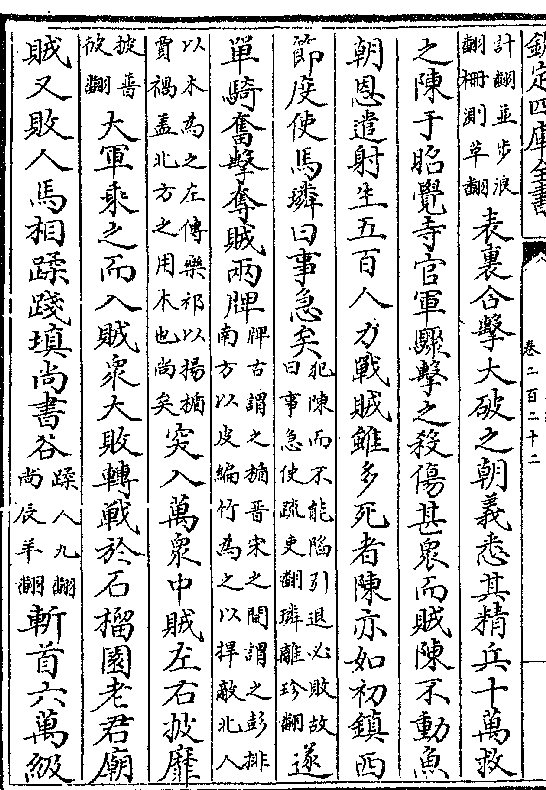 欽定四庫全書
卷二百二十二
計翻並步浪翻柵測草翻表裏合擊大破之朝義悉其精兵十萬救
之陳于昭覺寺官軍驟擊之殺傷甚衆而賊陳不動魚
朝恩遣射生五百人力戰賊雖多死者陳亦如初鎮西
節度使馬璘曰事急矣犯陳而不能陷引退必敗故曰事急使疏吏翻璘離珍翻遂
單騎奮擊奪賊兩牌牌古謂之楯晉宋之間謂之彭排南方以皮編竹為之以捍敵北人
以木為之左傳樂祁以揚楯賈禍盖北方之用木也尚矣突入萬衆中賊左右披靡
披普彼翻大軍乘之而入賊衆大敗轉戰於石榴園老君廟
賊又敗人馬相蹂踐填尚書谷蹂人九翻尚辰羊翻斬首六萬級